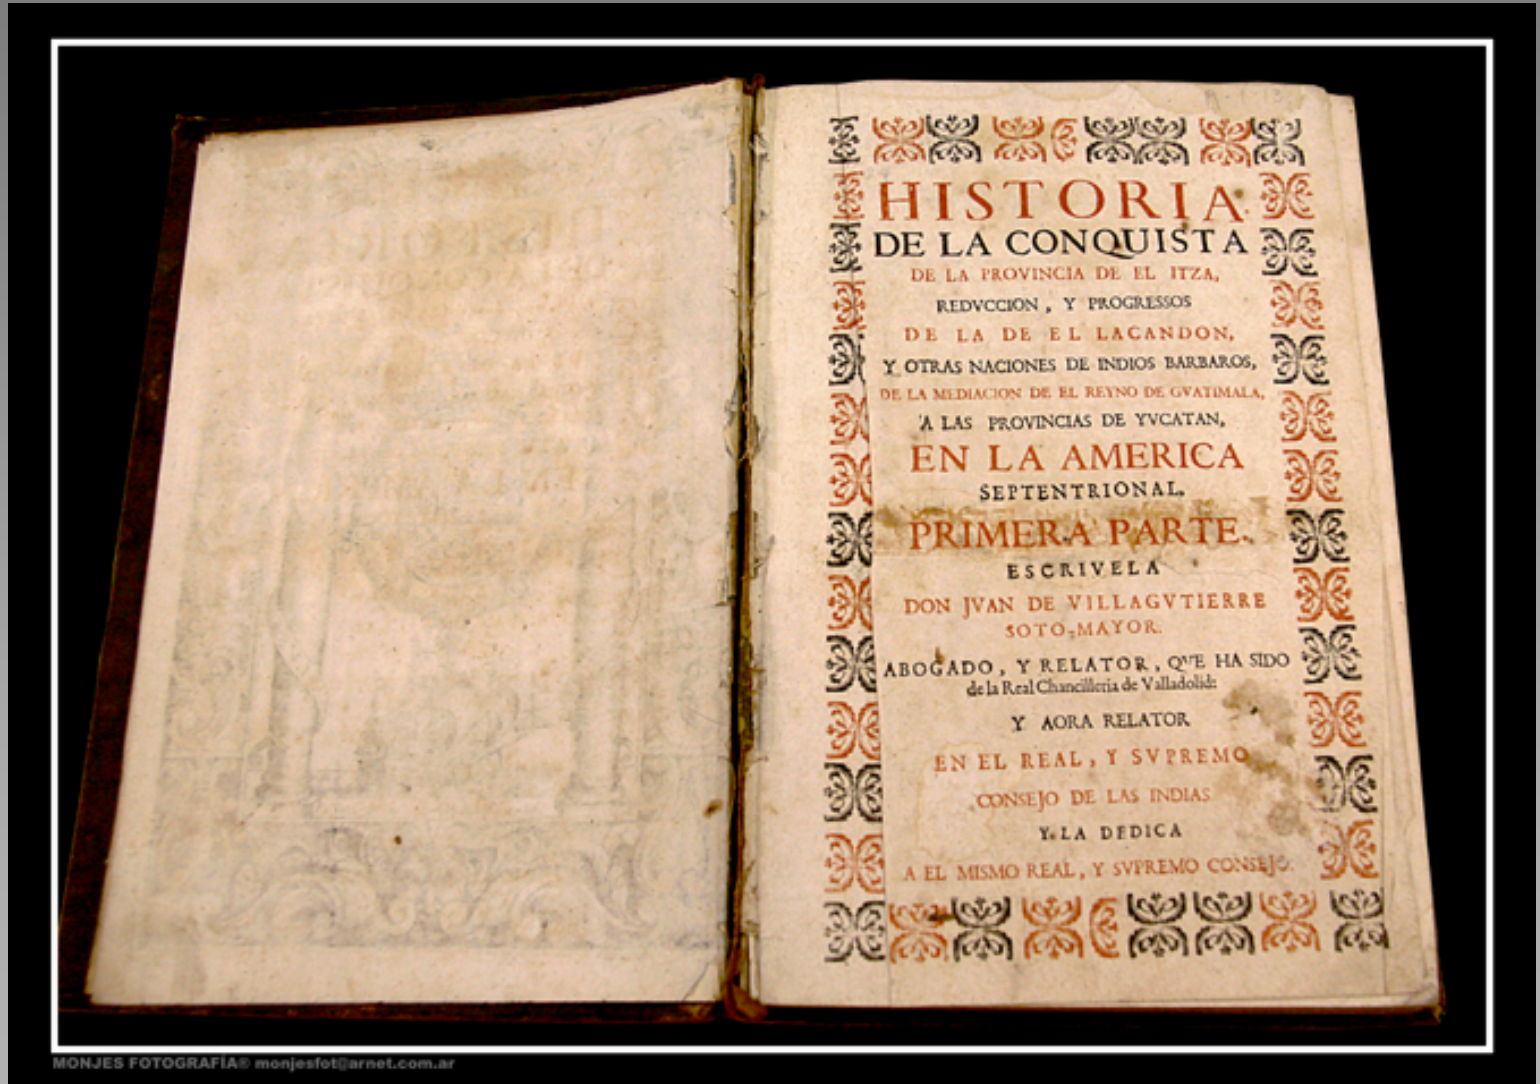 HISTORIA
DE LA CONQUISTA
DE LA PROVINCIA DE EL ITZA,
REDVCCION, Y PROGRESSOS
DE LA DE EL LACANDON,
Y OTRAS NACIONES DE INDIOS BARBAROS,
DE LA MEDIACION DE EL REYNO DE GVATIMALA,
A LAS PROVINCIAS DE YVCATAN,
EN LA AMERICA
SEPTENTRIONAL.
PRIMERA PARTE.
ESCRIVELA
DON JVAN DE VILLAGVTIERRE
SOTO-MAYOR.
ABOGADO, Y RELATOR, QVE HA SIDO
de la Real Chancilleria de Valladolid:
Y AORA RELATOR
EN EL REAL, Y SVPREMO
CONSEJO DE LAS INDIAS
Y LA DEDICA
A EL MISMO REAL, Y SVPREMO CONSEJO.
MONJES FOTOGRAFÍA® monjesfot@arnet.com.ar